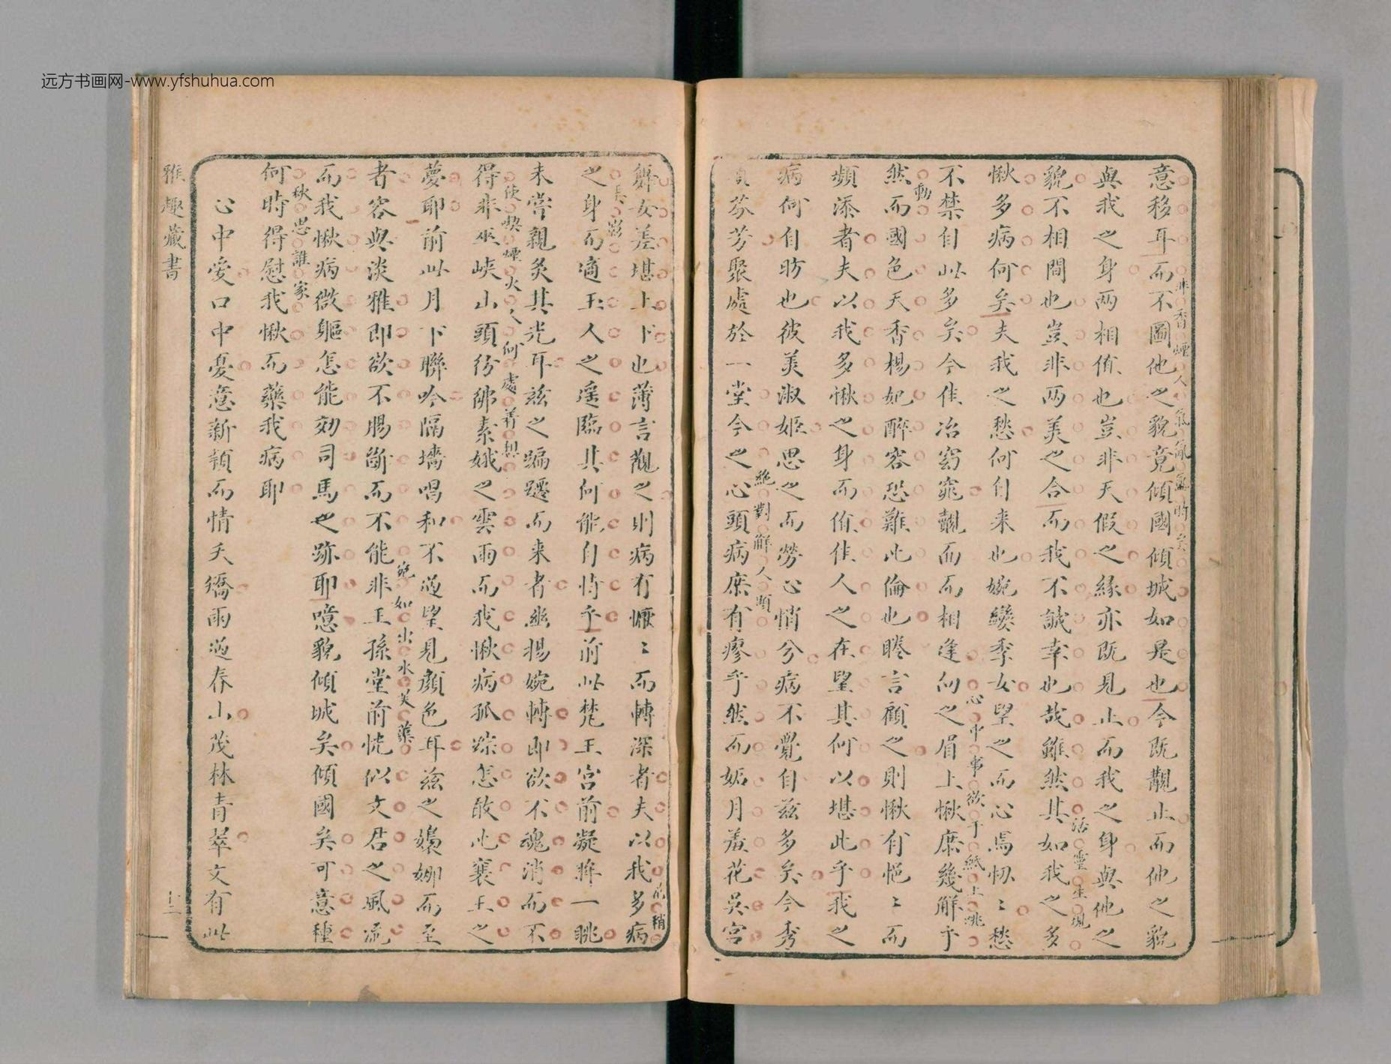 远方书画网-www.yfshuhua.com
意移耳而不圖他之貌竟傾國傾城如是也今既覯止而他之貌
與我之身兩相侑也豈非天假之緣亦既見止而我之身與他之
貌不相間也豈非兩美之合而我不誠幸也哉雖然其如我之多
愀多病何矣夫我之愁何自来也婉孌季女望之而心焉忉〻愁
不禁自此多矣今佳冶窈窕覯而而相逢仙之眉上愀庶幾解乎
然而國色天香楊妃醉容恐難比倫也睠言顧之則愀有悒〻而
頻添者夫以我多愀之身而侑佳人之在望其何以堪此乎我之
病何自昉也彼美淑姬思之而勞心悄兮病不覺自兹多矣今秀
芬芳聚處於一堂今之心頭病庶有瘳乎然而妬月羞花吳宮
女差堪上下也薄言觀之則病有懨〻而轉深者夫以我多病
之身而適玉人之遥臨其何能自恃乎前此楚王宮前凝眸一眺
未嘗親炙其光耳兹之蹁躚而来者幽揚婉轉即欲不魂消而不
得非巫峽山頭彷彿素娥之雲雨而我愀病孤踪怎敢比襄王之
夢耶前此月下聯吟隔墻唱和不過望見顔色耳兹之嬝娜而至
者容與淡雅即欲不腸斷而不能非王孫堂前恍似文君之風流
而我愀病微軀怎能効司馬之跡耶噫貌傾城矣傾國矣可意種
何時得慰我愀而藥我病耶
心中愛口中憂意新穎而情夭矯雨過春山茂林青翠文有此
雅趣藏書
十二
活靈生現
心中事欲于紙上跳
動
絶對解人頤
花稍
其影
使喫煙火人何處着想
宛如出水芙蕖
秋思誰家